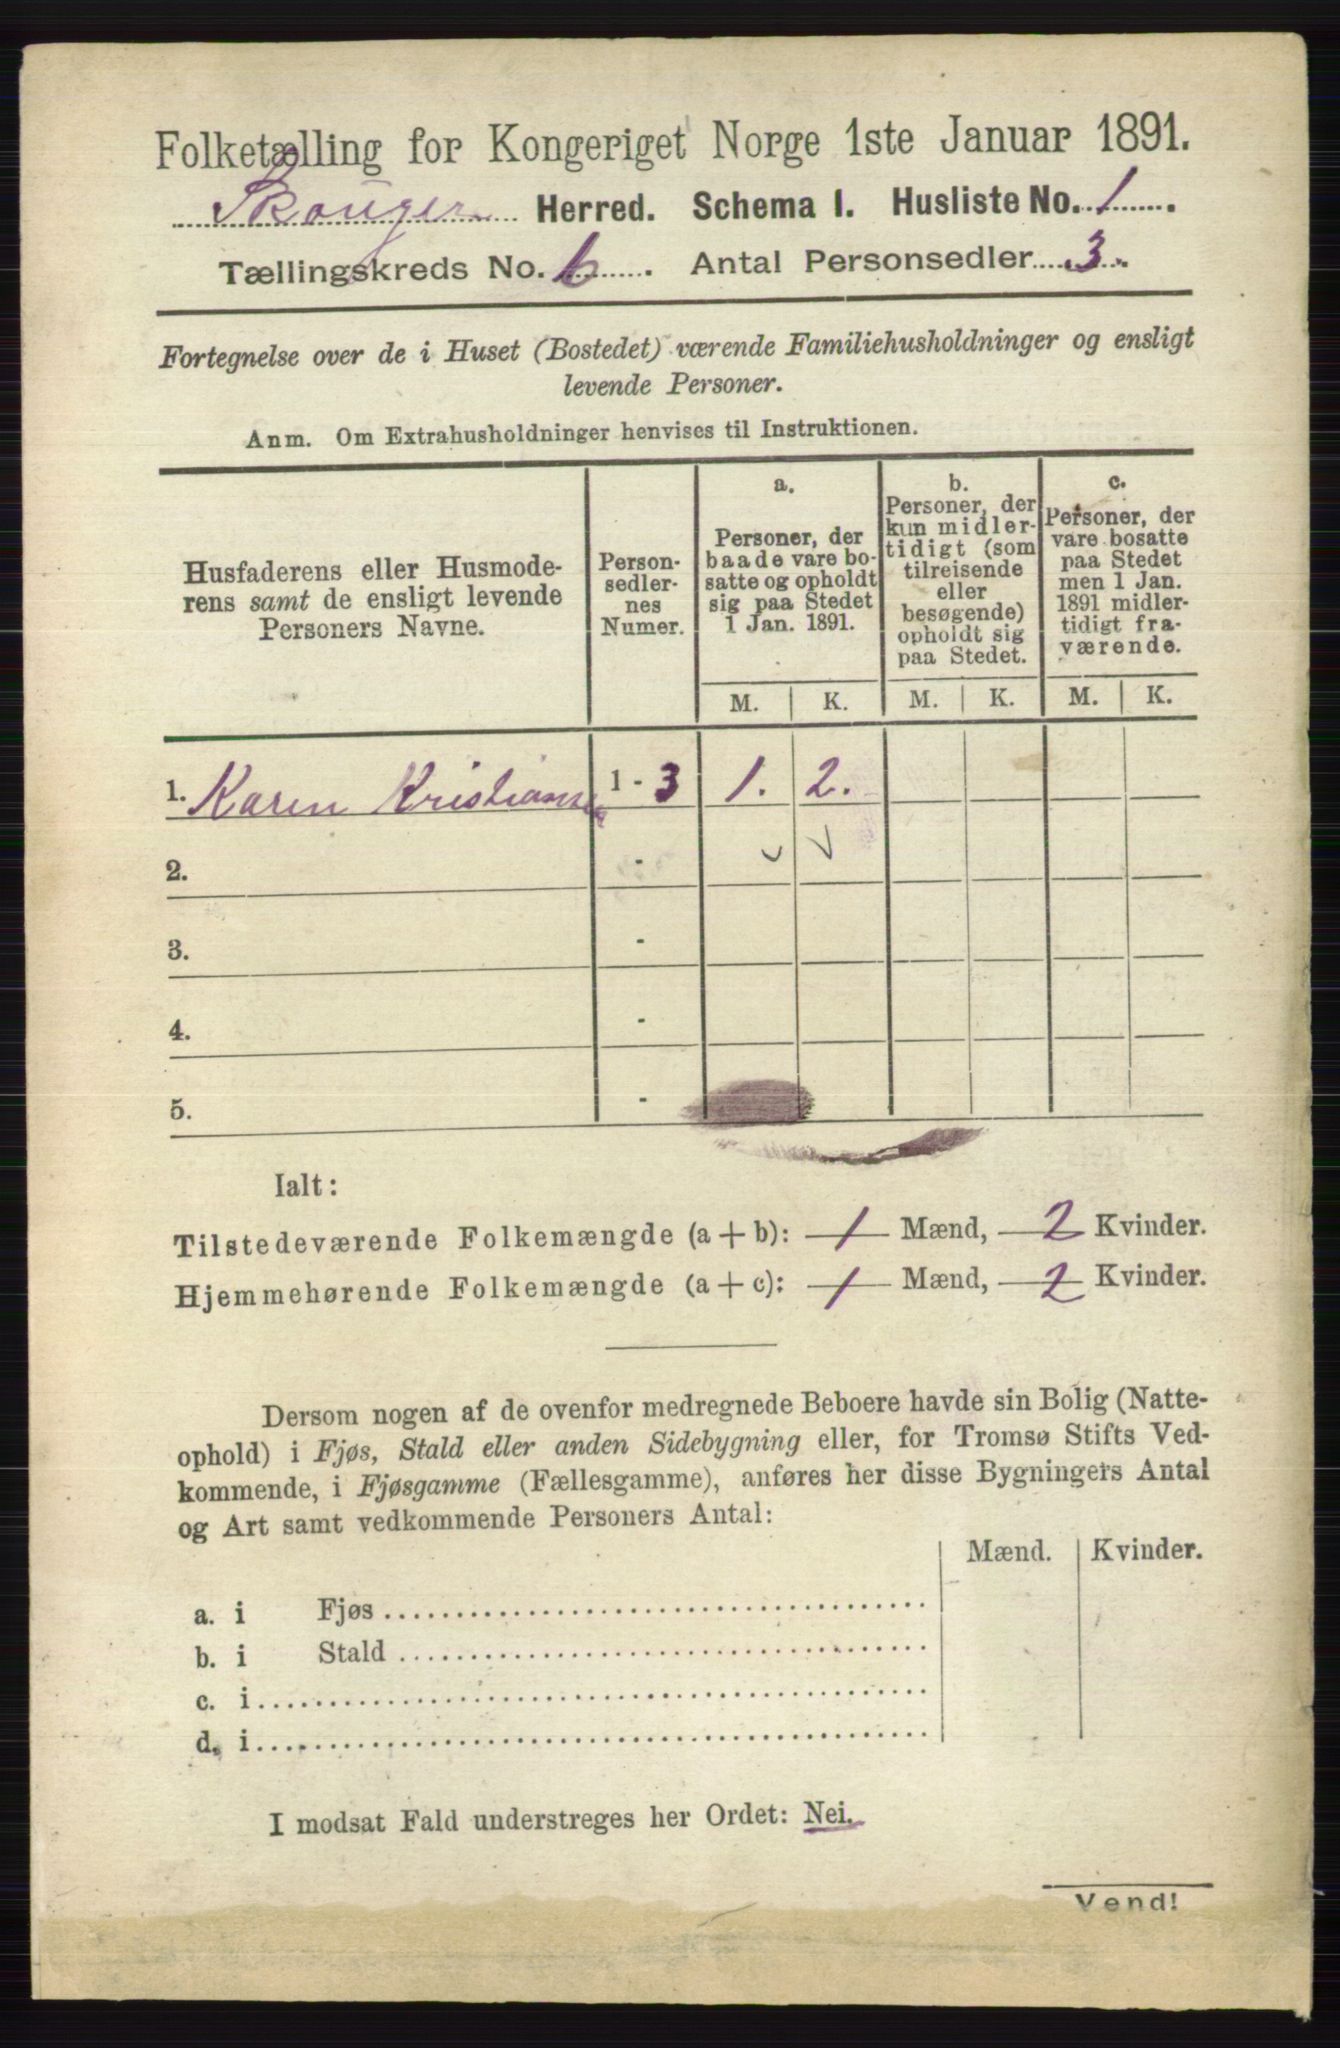 Folketælling for Kongeriget Norge 1ste Januar 1891.
Skouger Herred. Schema I. Husliste No. 1.
Tællingskreds No. 6. Antal Personsedler 3.
Fortegnelse over de i Huset (Bostedet) værende Familiehusholdninger og ensligt
levende Personer.
Anm. Om Extrahusholdninger henvises til Instruktionen.
Husfaderens eller Husmode-
rens samt de ensligt levende
Personers Navne.
Person-
sedler-
nes
Numer.
a.
Personer, der
baade vare bo-
satte og opholdt
sig paa Stedet
1 Jan. 1891.
b.
Personer, der
kun midler-
tidigt (som
tilreisende
eller
besøgende)
opholdt sig
paa Stedet.
c.
Personer, der
vare bosatte
paa Stedet
men 1 Jan.
1891 midler-
tidigt fra-
værende.
M. K. M. K. M. K.
1. Karen Kristianse 1 - 3 1. 2.
2. -
3. -
4. -
5. -
Ialt:
Tilstedeværende Folkemængde (a + b): 1 Mænd, 2 Kvinder.
Hjemmehørende Folkemængde (a + c): 1 Mænd, 2 Kvinder.
Dersom nogen af de ovenfor medregnede Beboere havde sin Bolig (Natte-
ophold) i Fjøs, Stald eller anden Sidebygning eller, for Tromsø Stifts Ved-
kommende, i Fjøsgamme (Fællesgamme), anføres her disse Bygningers Antal
og Art samt vedkommende Personers Antal:
Mænd. Kvinder.
a. i Fjøs
b. i Stald
c. i
d. i
I modsat Fald understreges her Ordet: Nei.
Vend!